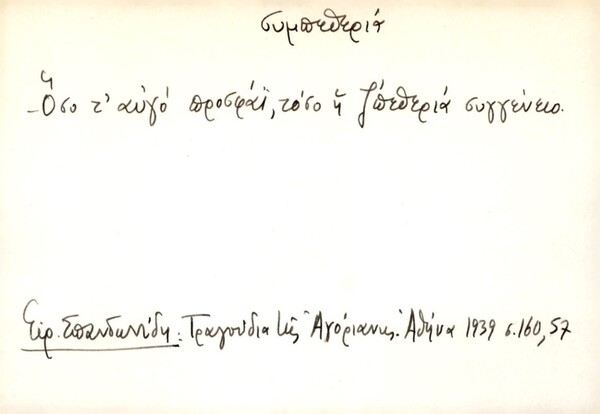 συμπεθεριά
- Ὅσο τ' αὐγό προσφάϊ, τόσο ἡ ζ'μπεθεριά συγγένειο.
Εἰρ. Σπανδωνίδη: Τραγούδια τῆς Ἀγόριανης. Ἀθήνα 1939 σ. 160, 57